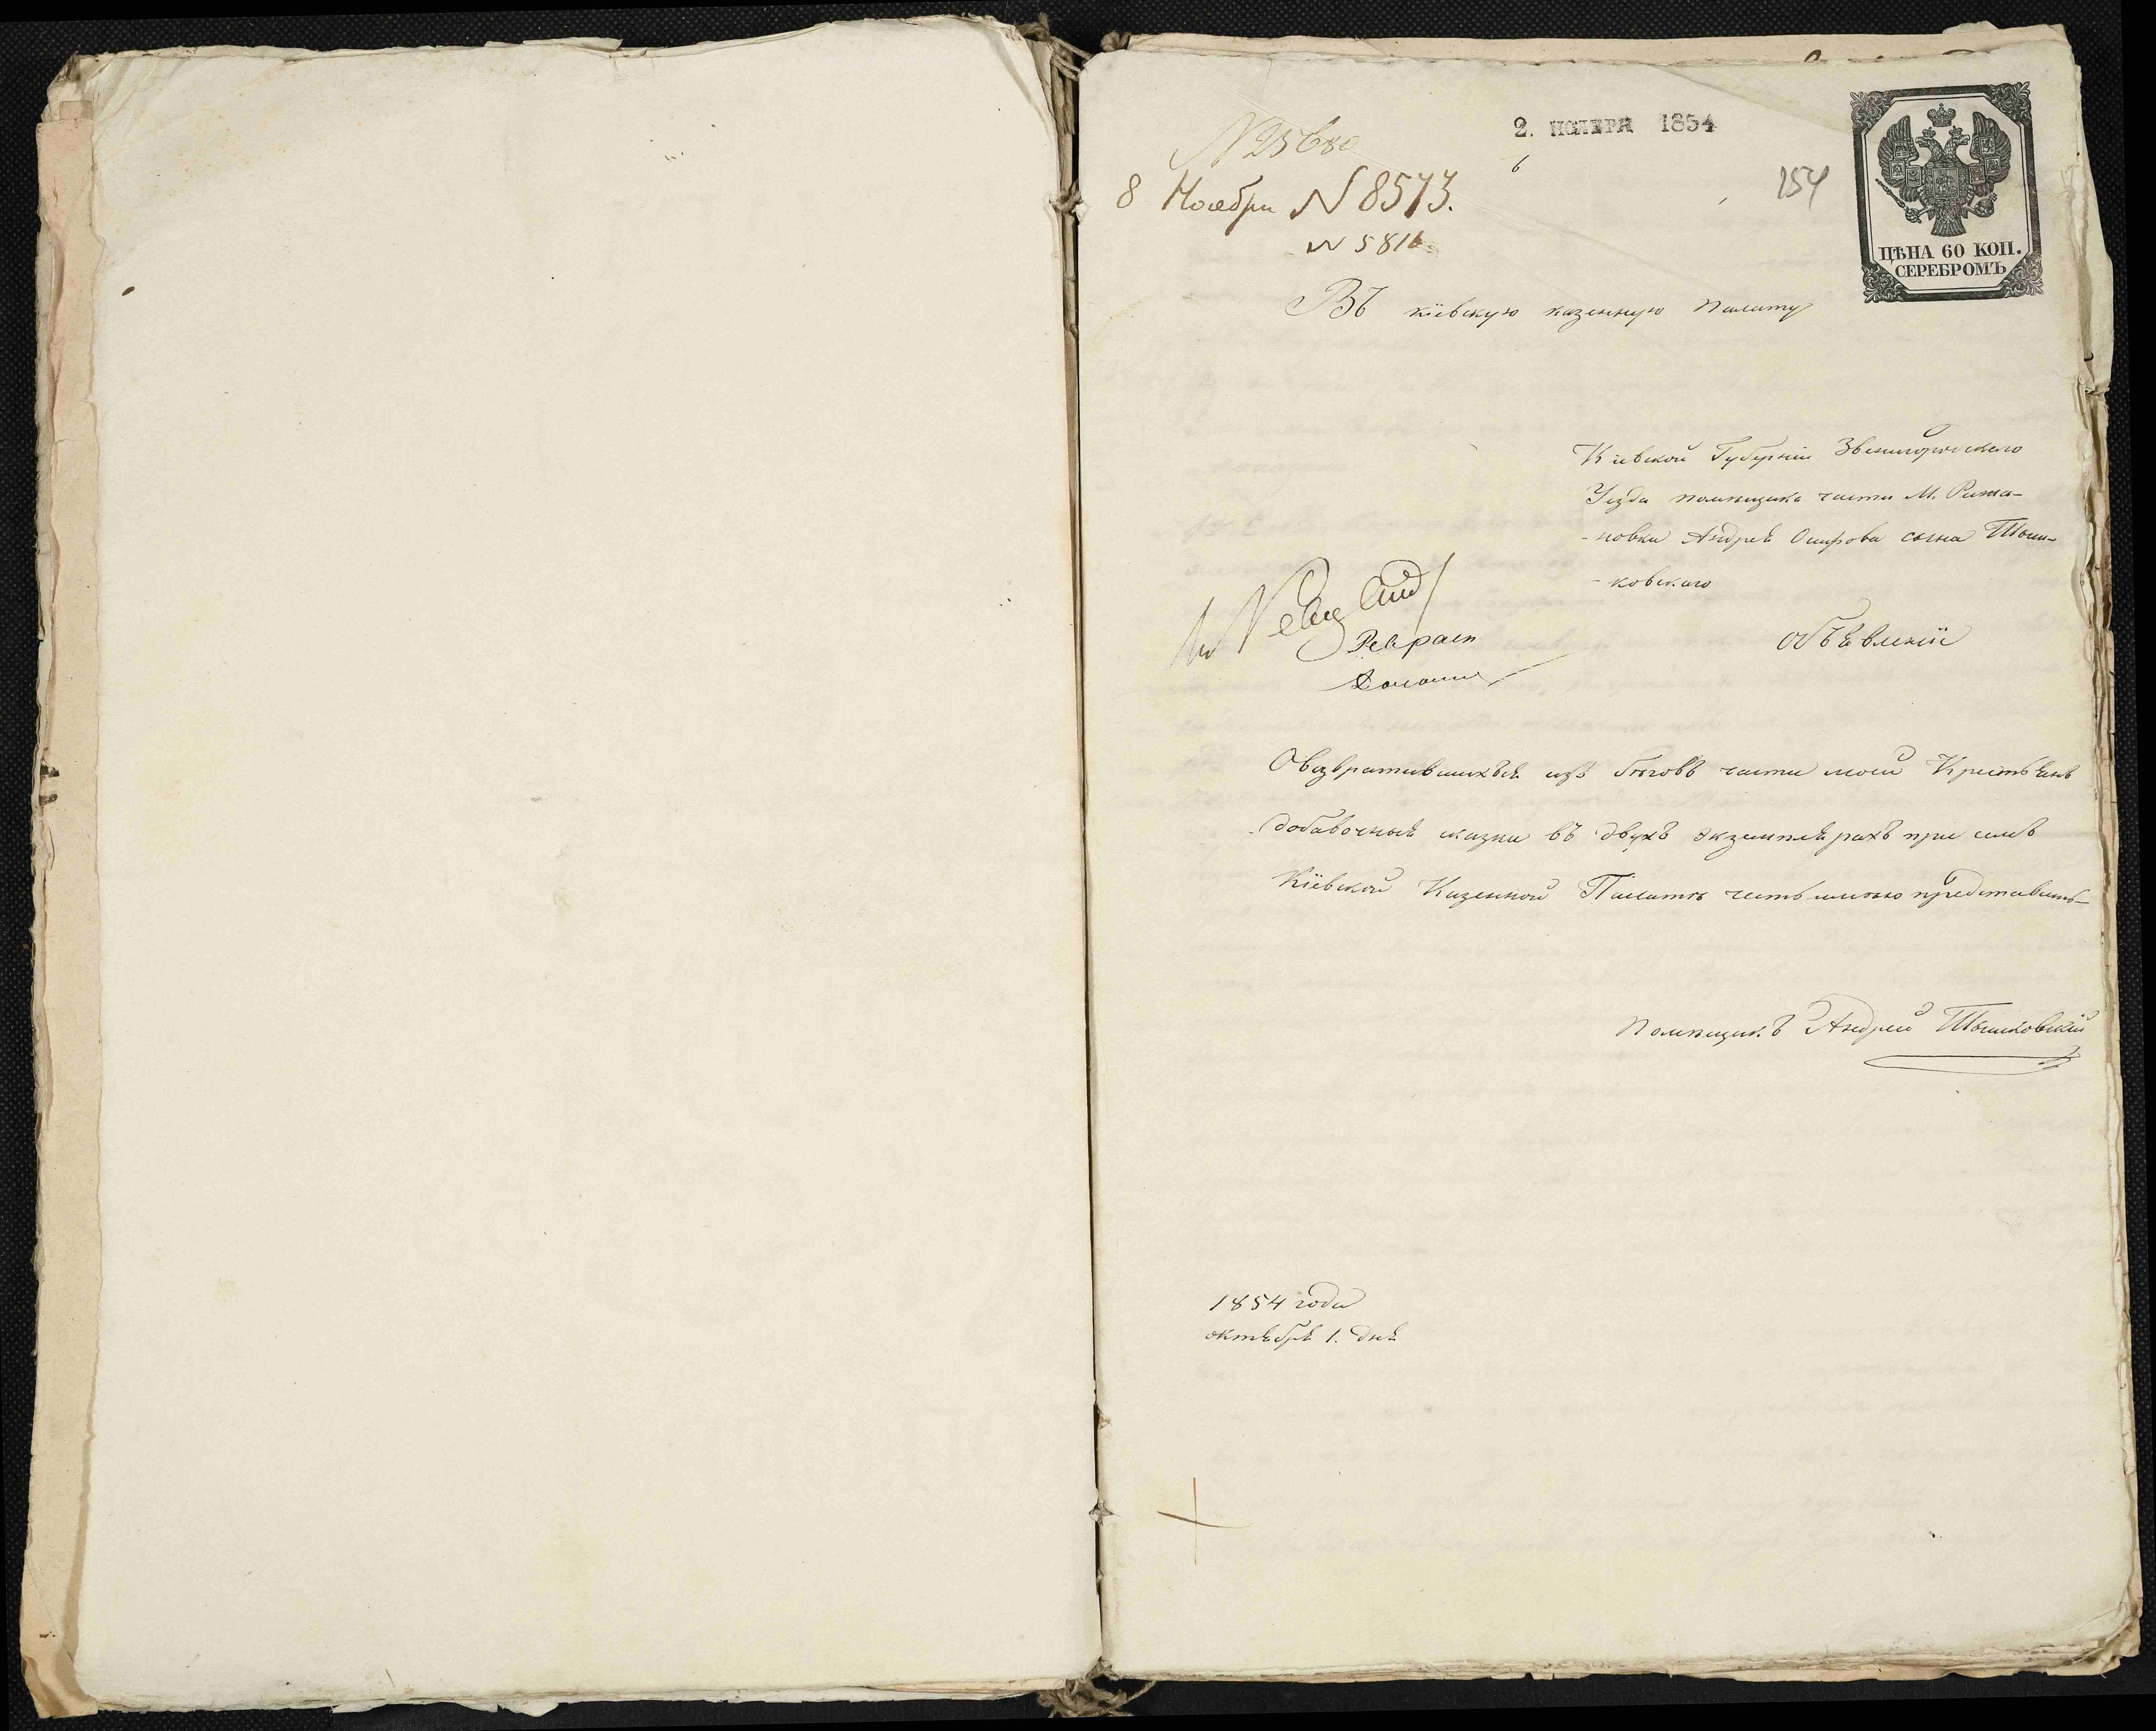 2. НОЯБРЯ 1854
154
8 Ноября N 8573.
N 5816
ЦѢНА 60 КОП.
СЕРЕБРОМЪ
Въ кіевскую казенную палату
Кіевской Губерніи Звенигородскаго
Уѣзда помѣщика части М. Рижа-
-новки Андрея Осипова сына Тышь-
-ковскаго
Объявленіе
О возвратившихъся изъ бѣговъ части моей Крестьянъ
добавочныя сказки въ двухъ экземплярахъ при семъ
Кіевской Казенной Палатѣ честь имѣю представить
Помѣщикъ Андрей Тышковскій
1854 года
октября 1. дня